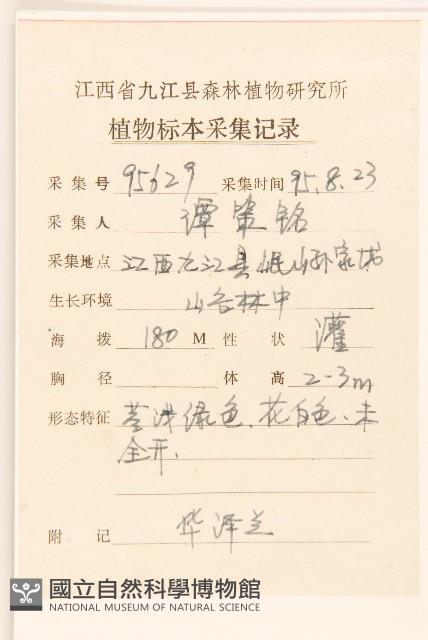 江西省九江县森林植物研究所
植物标本采集记录
采集号 95629 采集时间 95.8.23
采集人 谭策铭
采集地点 江西九江县岷山孙家垅
生长环境 山谷林中
海拨 180 M 性状 灌
胸径 体高 2-3m
形态特征 萼浅绿色、花白色、未
全开.
附记 华泽兰
國立自然科學博物館
NATIONAL MUSEUM OF NATURAL SCIENCE